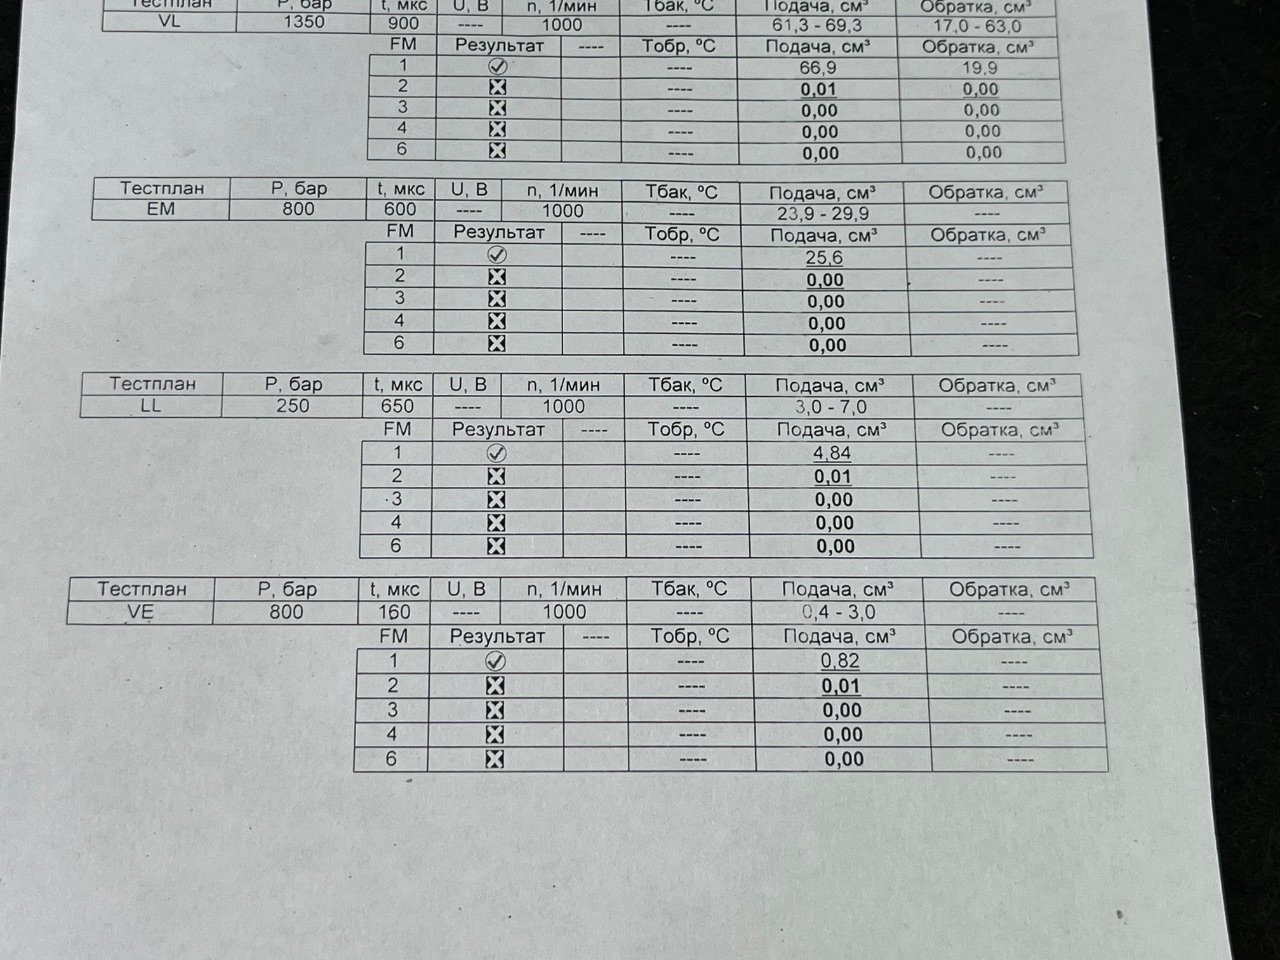 Тестплан P, бар t, мкс U, В n, 1/мин Тбак, ºC Подача, см³ Обратка, см³
VL 1350 900 ---- 1000 ---- 61,3 - 69,3 17,0 - 63,0
FM Результат ---- Тобр, ºC Подача, см³ Обратка, см³
1 ---- 66,9 19,9
2 ---- 0,01 0,00
3 ---- 0,00 0,00
4 ---- 0,00 0,00
6 ---- 0,00 0,00
Тестплан P, бар t, мкс U, В n, 1/мин Тбак, ºC Подача, см³ Обратка, см³
EM 800 600 ---- 1000 ---- 23,9 - 29,9 ----
FM Результат ---- Тобр, ºC Подача, см³ Обратка, см³
1 ---- 25,6 ----
2 ---- 0,00 ----
3 ---- 0,00 ----
4 ---- 0,00 ----
6 ---- 0,00 ----
Тестплан P, бар t, мкс U, В n, 1/мин Тбак, ºC Подача, см³ Обратка, см³
LL 250 650 ---- 1000 ---- 3,0 - 7,0 ----
FM Результат ---- Тобр, ºC Подача, см³ Обратка, см³
1 ---- 4,84 ----
2 ---- 0,01 ----
3 ---- 0,00 ----
4 ---- 0,00 ----
6 ---- 0,00 ----
Тестплан P, бар t, мкс U, В n, 1/мин Тбак, ºC Подача, см³ Обратка, см³
VE 800 160 ---- 1000 ---- 0,4 - 3,0 ----
FM Результат ---- Тобр, ºC Подача, см³ Обратка, см³
1 ---- 0,82 ----
2 ---- 0,01 ----
3 ---- 0,00 ----
4 ---- 0,00 ----
6 ---- 0,00 ----